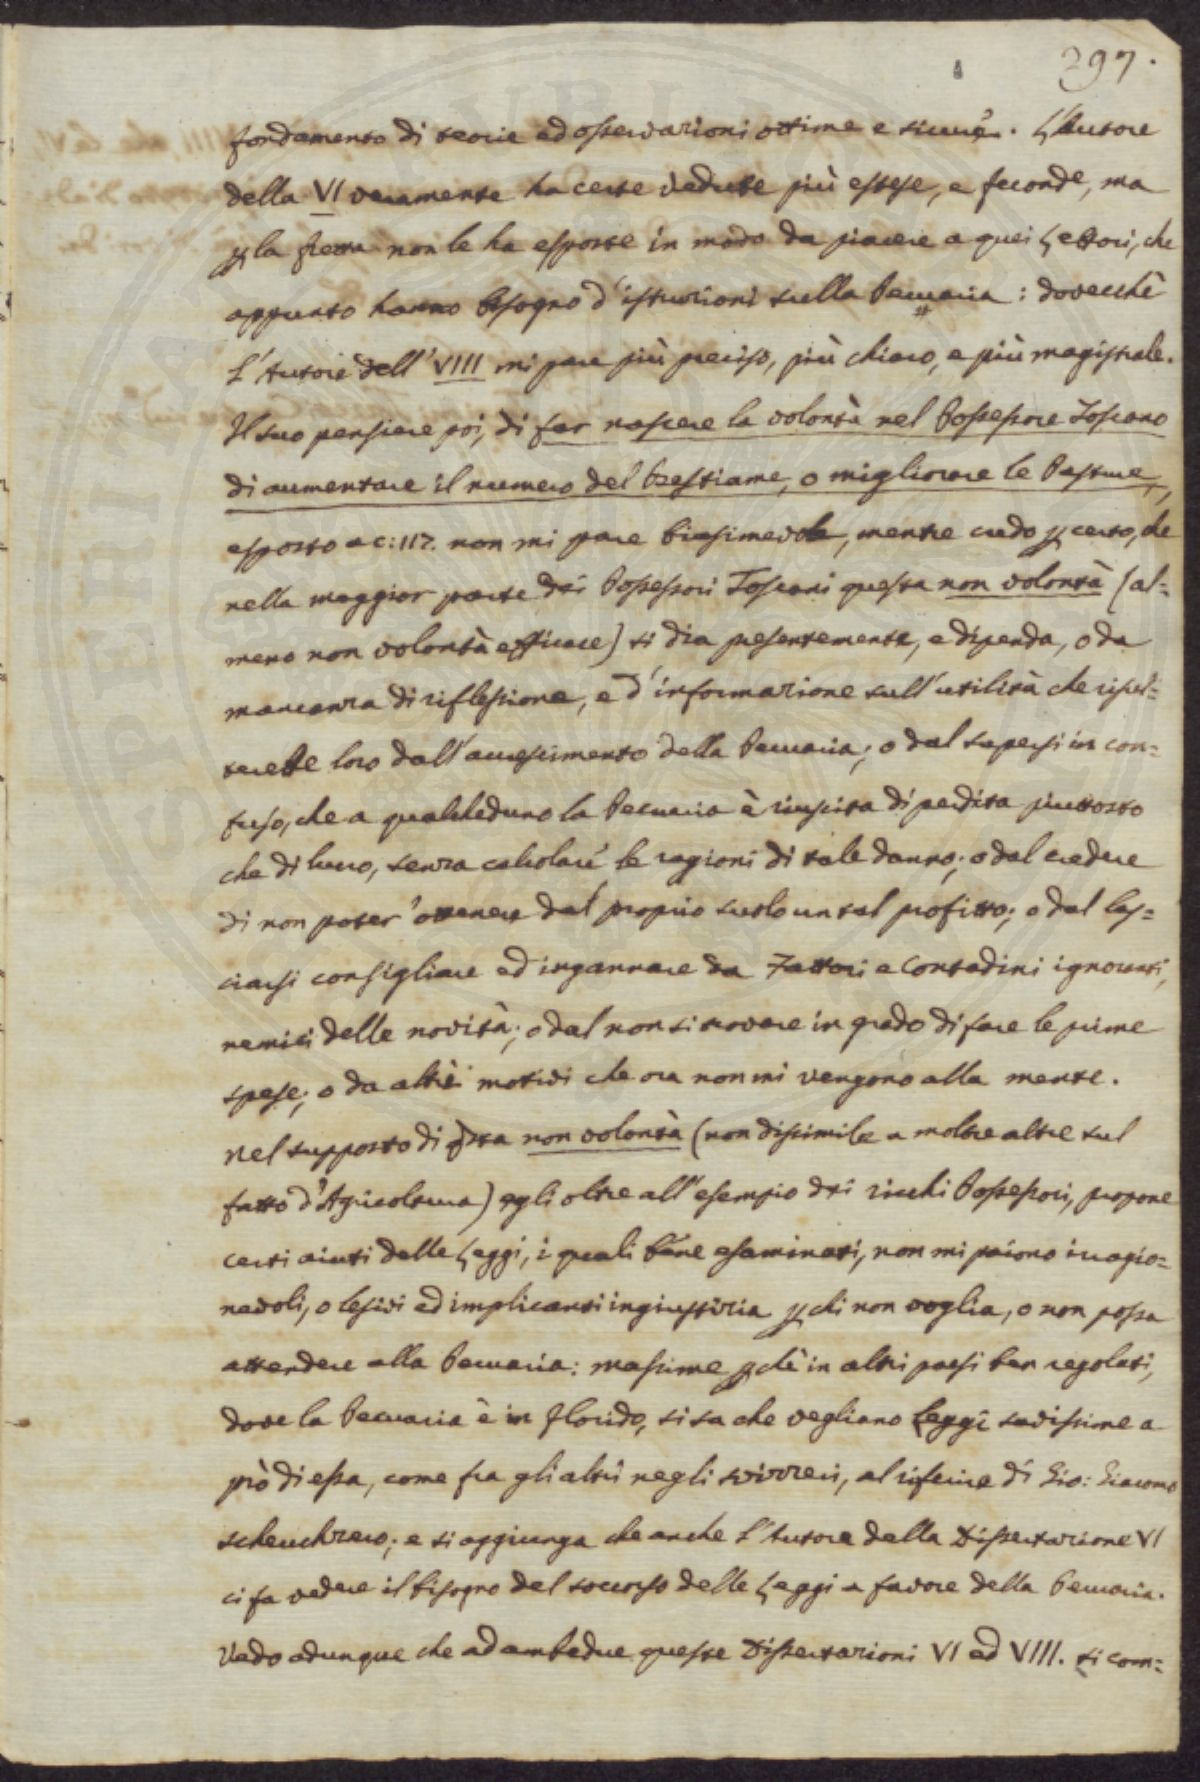 297.
fondamento di teorie ed osservazioni ottime e sicure. L'Autore
della VI veramente ha certe vedute più estese, e feconde, ma
p la fretta non le ha esposte in modo da piacere a quei Lettori, che
appunto hanno bisogno d'istruzioni sulla Pecuaria: dovecchè
l'Autore dell'VIII mi pare più preciso, più chiaro, e più magistrale.
Il suo pensiere poi, di far nascere la volontà nel Possessore Toscano
di aumentare il numero del bestiame, o migliorare le Pasture,
esposto a c: 117. non mi pare biasimevole, mentre credo p certo, che
nella maggior parte dei Possessori Toscani questa non volontà (al=
meno non volontà efficace) si dia presentemente, e dipenda, o da
mancanza di riflessione, e d'informazione sull'utilità che risul=
terebbe loro dall'accrescimento della Pecuaria; o dal sapersi in con=
fuso, che a qualcheduno la Pecuaria è riuscita di perdita piuttosto
che di lucro, senza calcolare le ragioni di tale danno; o dal credere
di non poter ottenere dal proprio suolo un tal profitto; o dal las=
ciarsi consigliare ed ingannare da Fattori e Contadini ignoranti,
nemici delle novità; o dal non si trovare in grado di fare le prime
spese; o da altri motivi che ora non mi vengono alla mente.
Nel supposto di qsta non volontà (non dissimile a molte altre sul
fatto d'Agricoltura) egli oltre all'esempio dei ricchi Possessori, propone
certi aiuti delle Leggi, i quali bene esaminati, non mi paiono irragio=
nevoli, o lesivi ed implicanti ingiustizia p chi non voglia, o non possa
attendere alla Pecuaria: massime pchè in altri paesi ben regolati,
dove la Pecuaria è in florido, si sa che vegliano Leggi savissime a
prò di essa, come fra gli altri negli Svizzeri, al riferire di Gio: Giacomo
Scheuchzero; e si aggiunga che anche l'Autore della Dissertazione VI
ci fa vedere il bisogno del soccorso delle Leggi a favore della Pecuaria.
Vedo adunque che ad ambedue queste Dissertazioni VI ed VIII. si com=